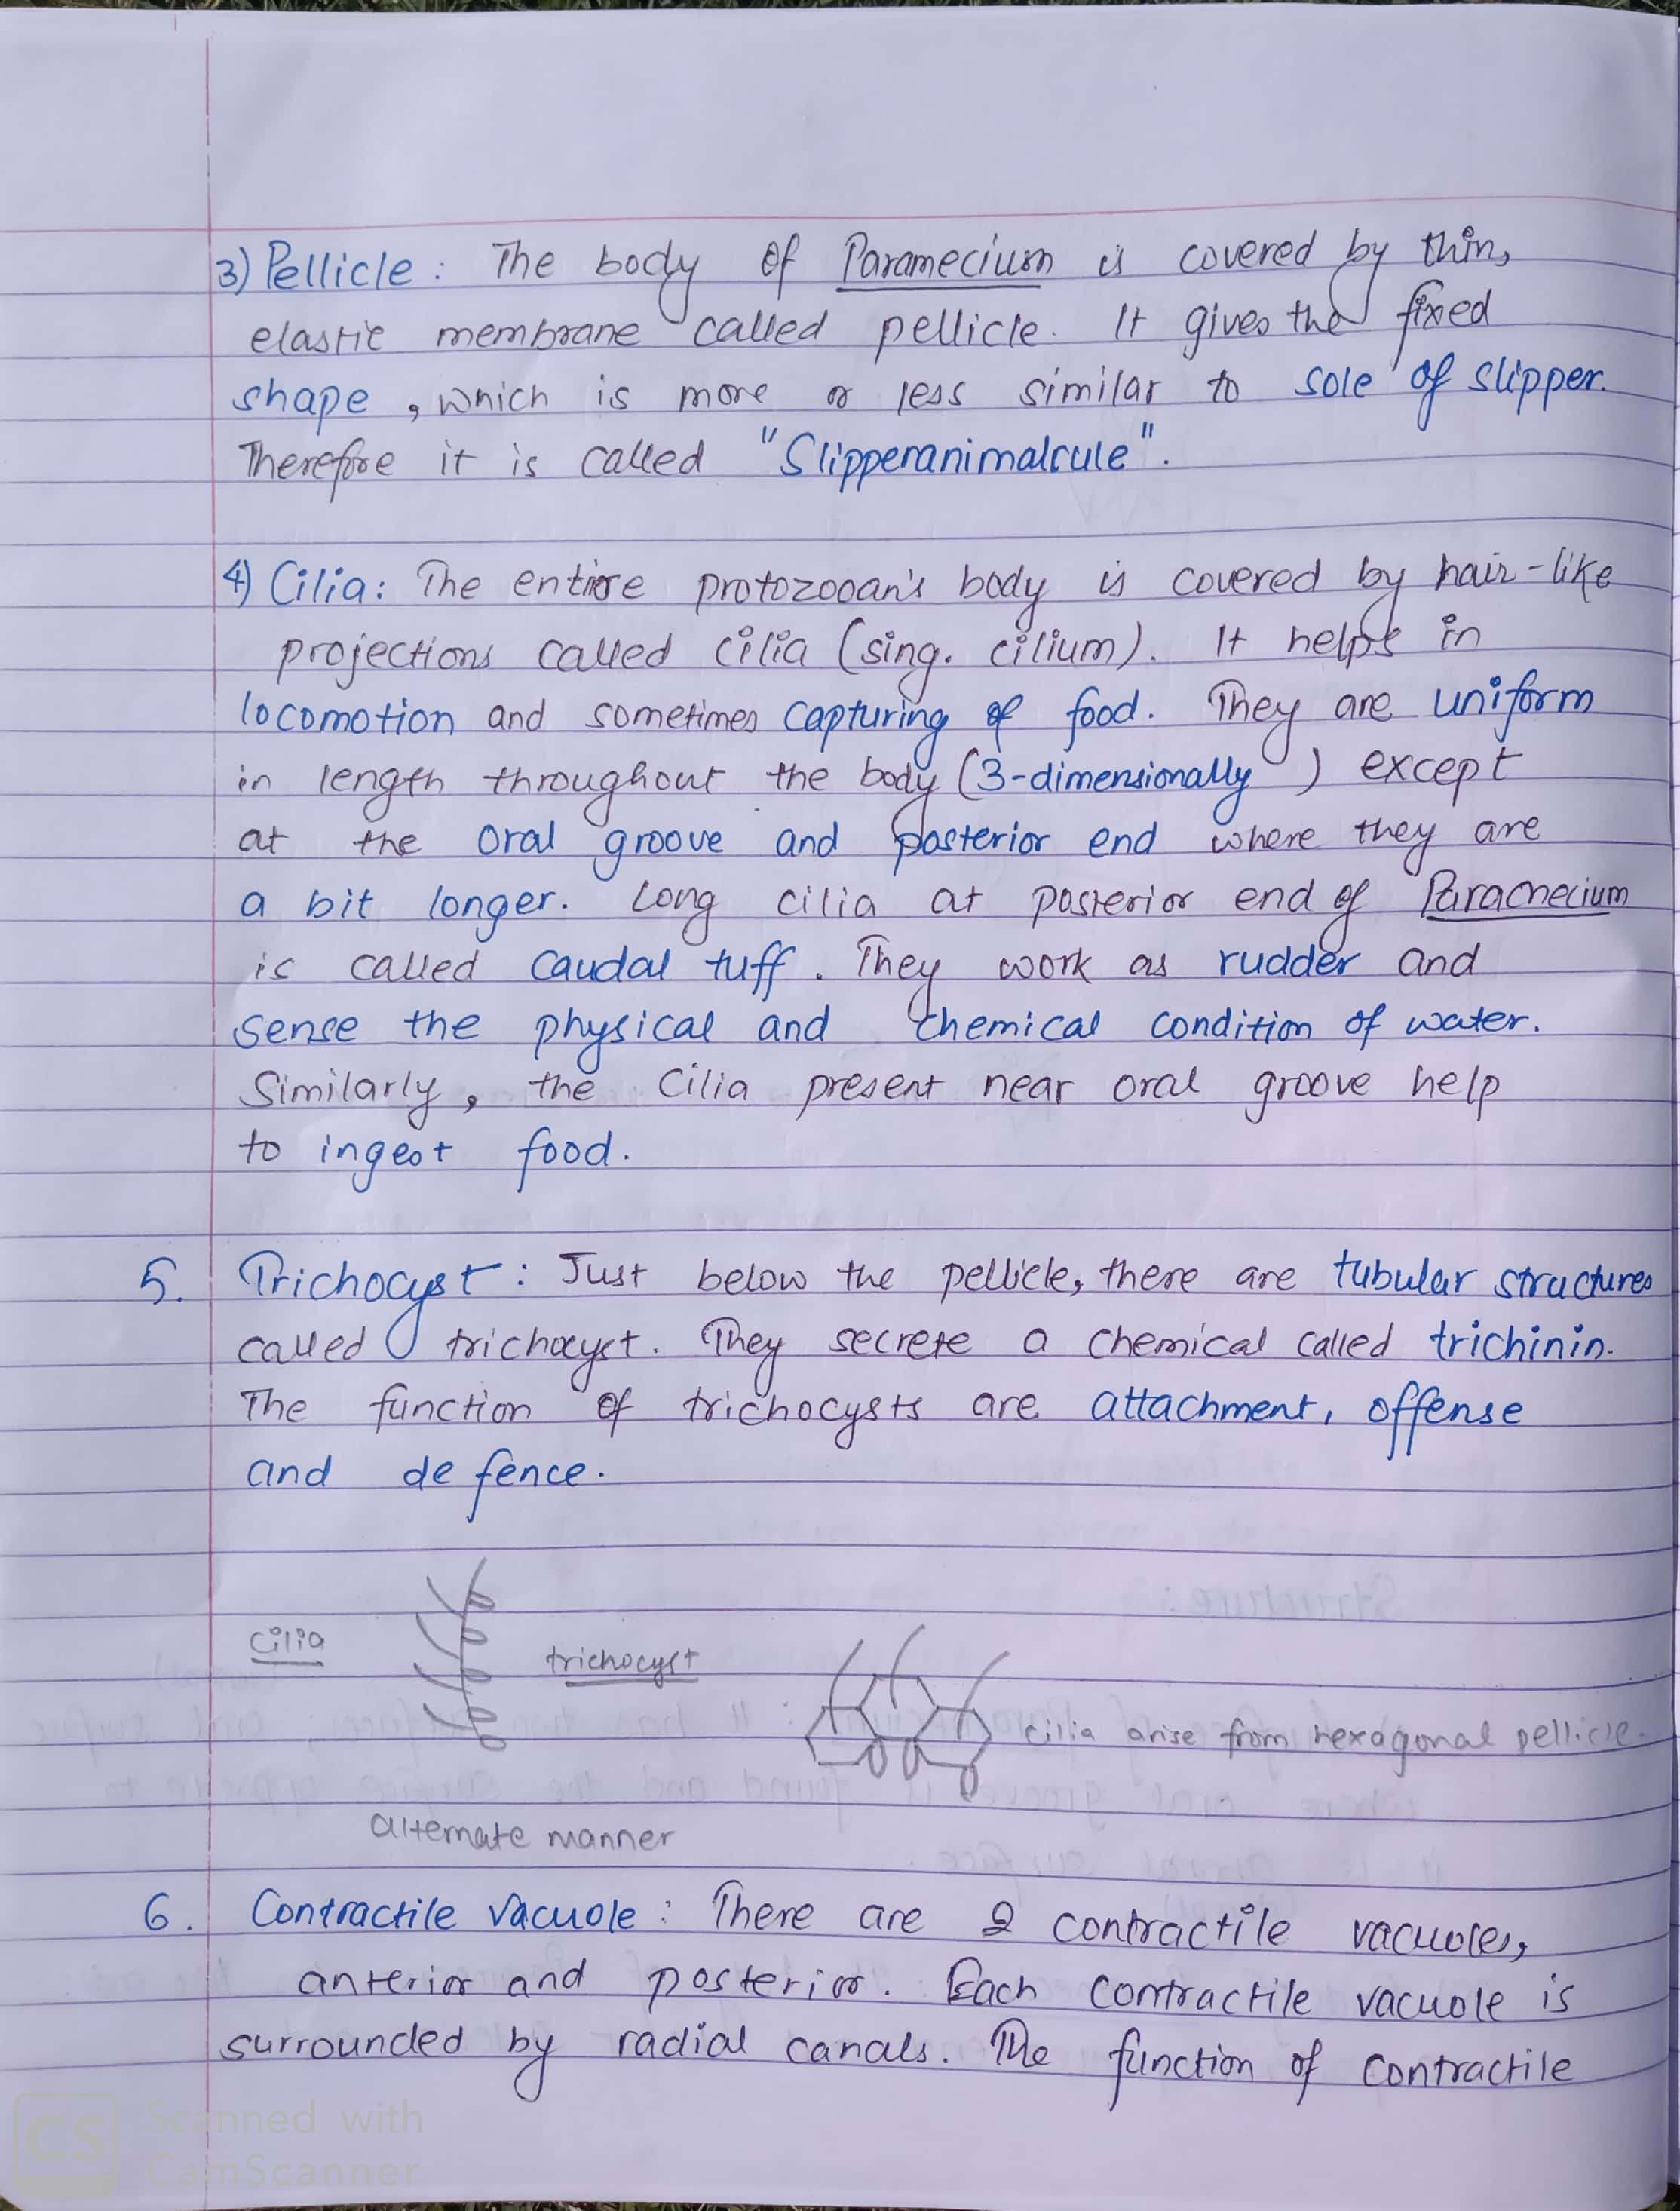 3) Pellicle : The body of Paramecium is covered by thin,
elastic membrane called pellicle. It gives the fixed
shape, which is more or less similar to sole of slipper.
Therefore it is called "Slipperanimalcule".
4) Cilia: The entire protozooan's body is covered by hair-like
projections called cilia (sing. cilium). It helps in
locomotion and sometimes capturing of food. They are uniform
in length throughout the body (3-dimensionally) except
at the oral groove and posterior end where they are
a bit longer. Long cilia at posterior end of Paramecium
is called caudal tuff. They work as rudder and
sense the physical and chemical condition of water.
Similarly, the cilia present near oral groove help
to ingest food.
5. Trichocyst : Just below the pellicle, there are tubular structures
called trichocyst. They secrete a chemical called trichinin.
The function of trichocysts are attachment, offense
and defence.
cilia
trichocyst
cilia arise from hexagonal pellicle.
alternate manner
6. Contractile vacuole : There are 2 contractile vacuoles,
anterior and posterior. Each contractile vacuole is
surrounded by radial canals. The function of contractile
CS Scanned with
CamScanner